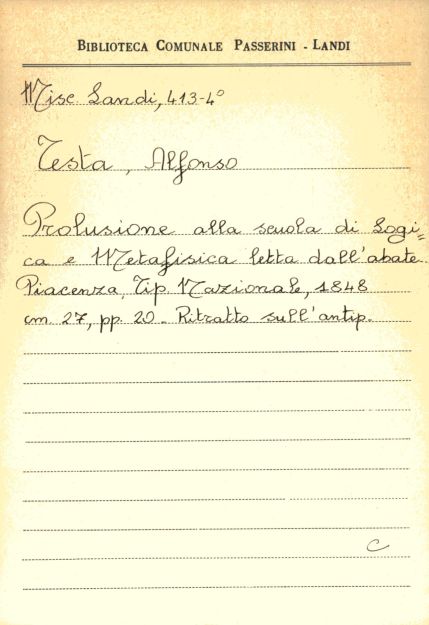 BIBLIOTECA COMUNALE PASSERINI - LANDI
Misc Landi, 413-4°
Testa, Alfonso
Prolusione alla scuola di Logi=
ca e Metafisica letta dall'abate.
Piacenza, Tip Nazionale, 1848
cm 27, pp. 20 - Ritratto sull'antip.
C